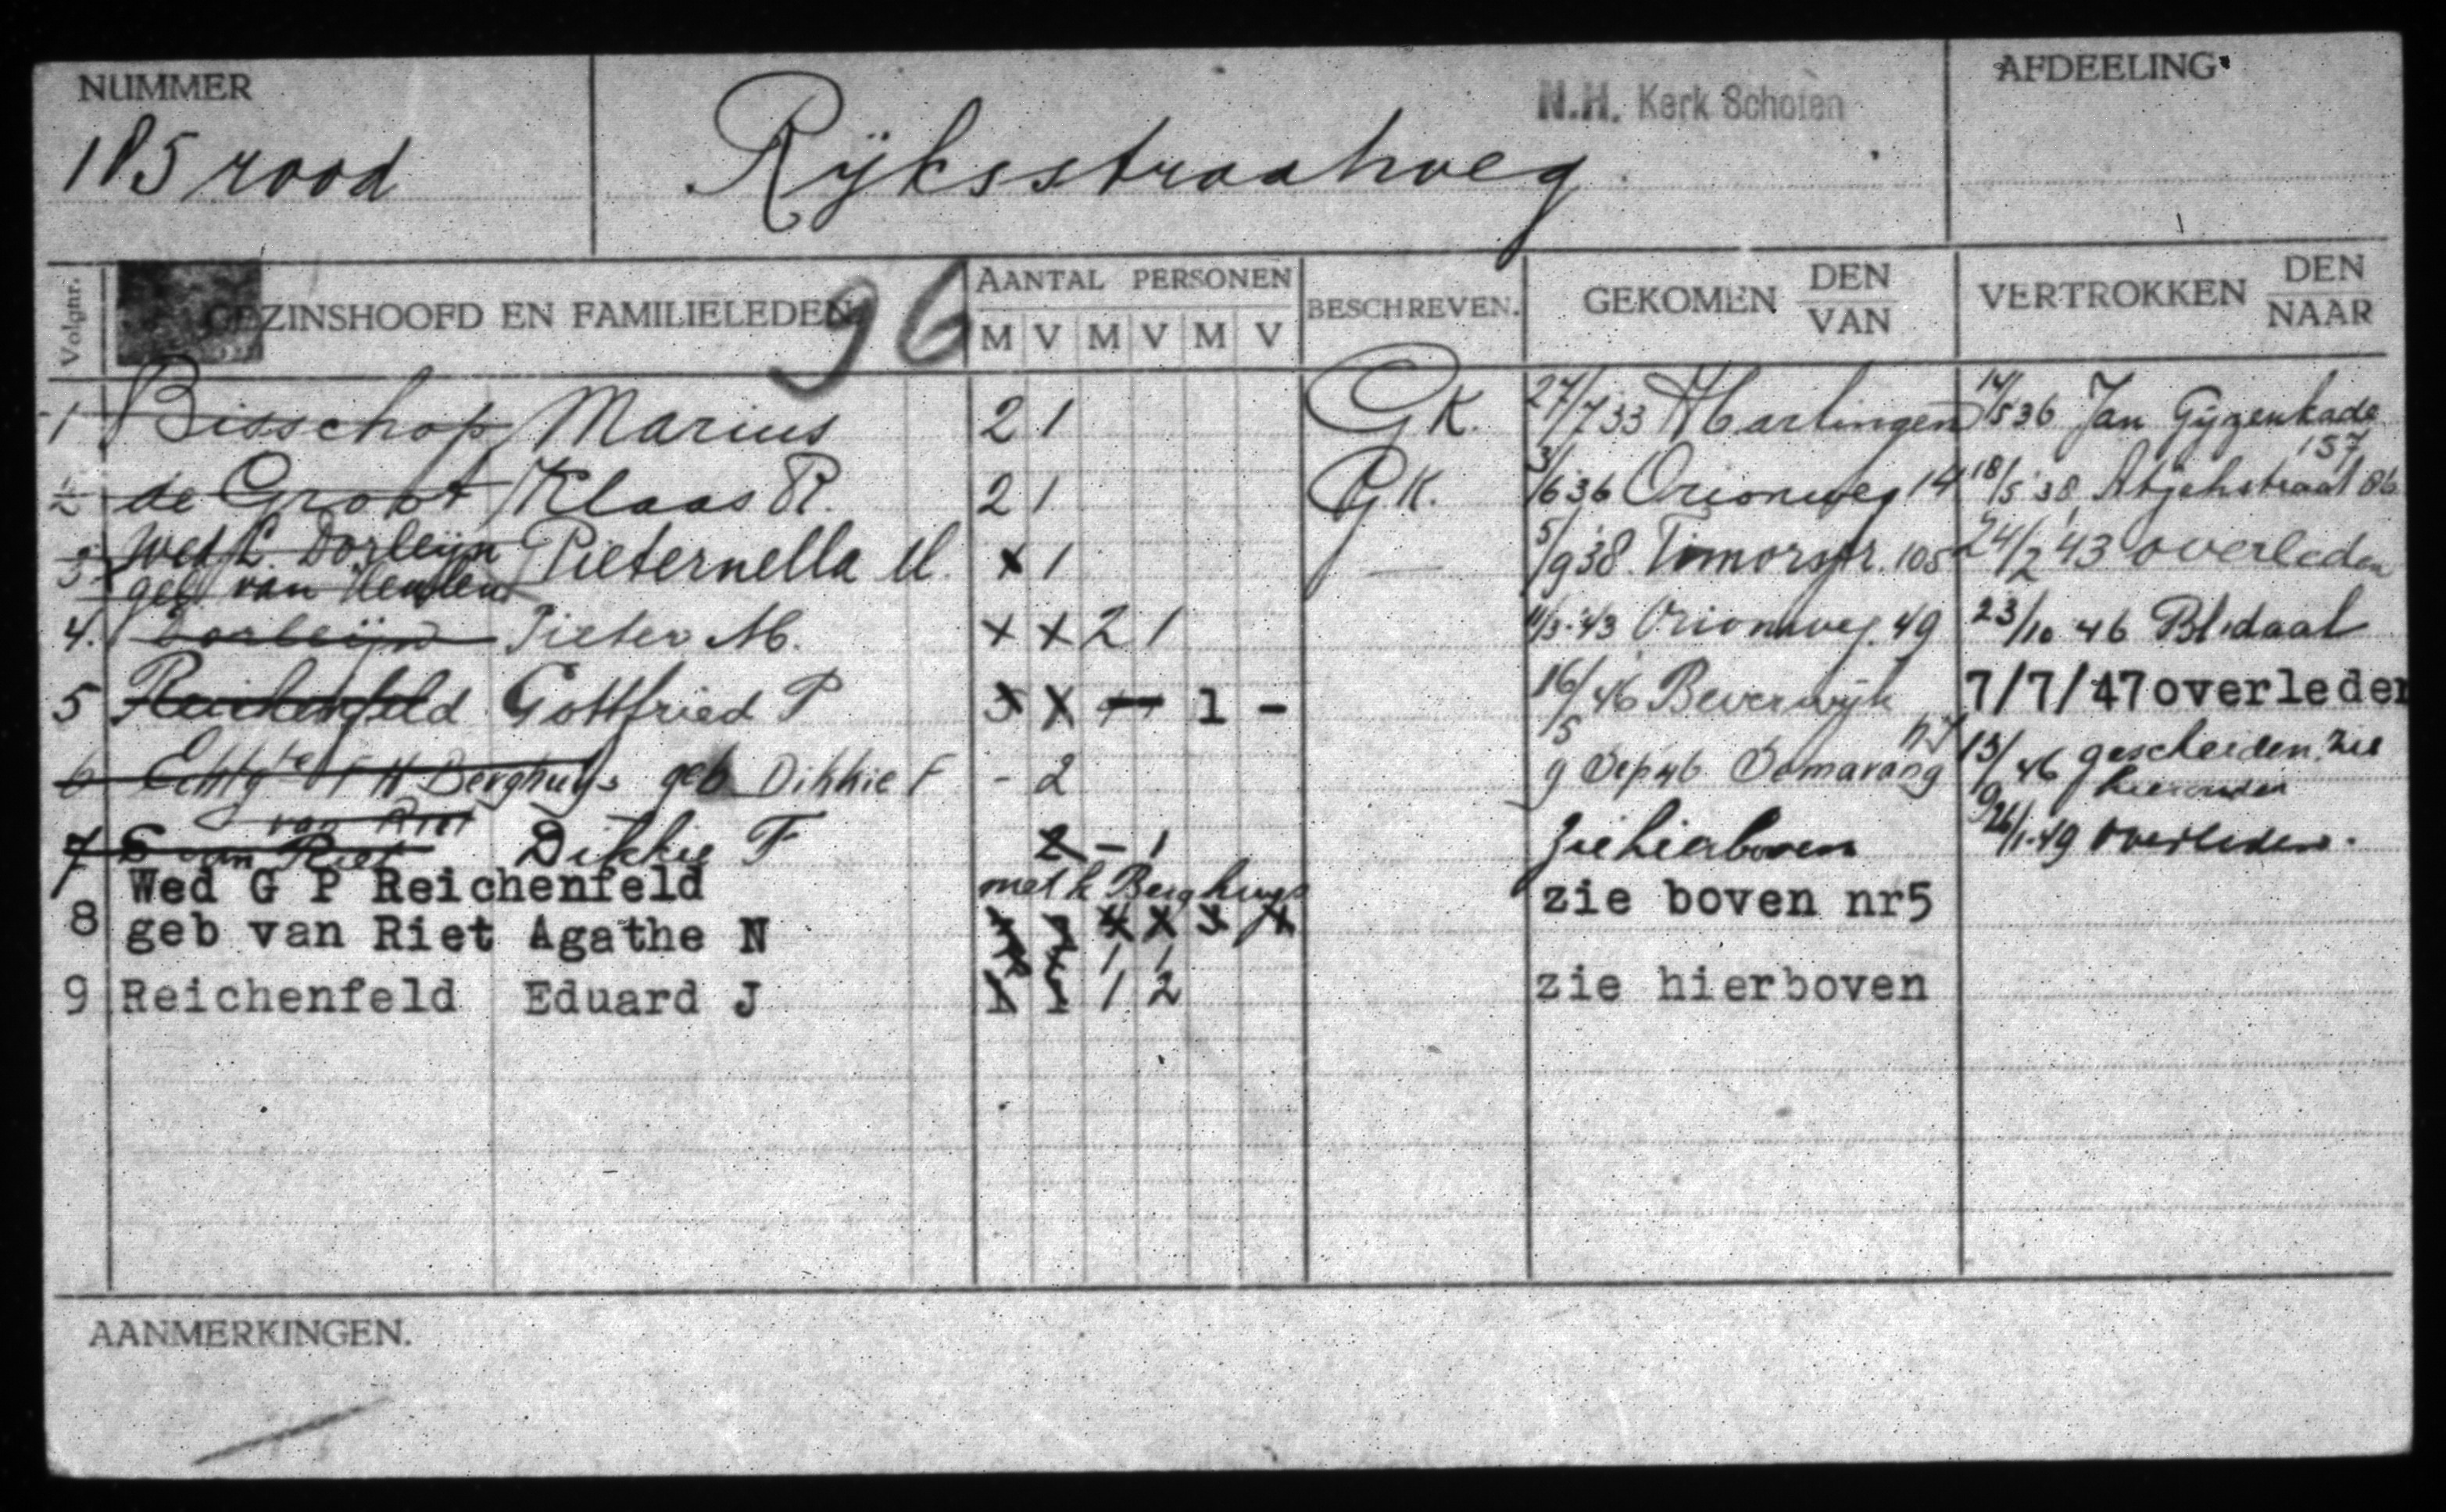 NUMMER
185 rood
Rijksstraatweg
N.H. Kerk Schoten
AFDEELING
Volgnr.
GEZINSHOOFD EN FAMILIELEDEN
96
AANTAL PERSONEN
M V M V M V
BESCHREVEN.
GEKOMEN DEN VAN
VERTROKKEN DEN NAAR
1 Bisschop Marius 2 1 GK. 27/7 33 Harlingen 14/5 36 Jan Gijzenkade 157
2 de Groot Klaas R. 2 1 GK. 3/6 36 Orionweg 14 18/5 38 Atjehstraat 86
3 Wed. L. Dorleijn
geb van Heusden Pieternella M. x 1 — 5/9 38 Timorstr. 105 24/2 '43 overleden
4. Dorleijn Pieter M. x x 2 1 11/3 '43 Orionweg 49 23/10 46 Bl.daal
5 Reichenfeld Gottfried P X 1 - 16/5 46 Beverwijk 7/7/47 overleden
6 Echtgte F H Berghuys geb Dikkie F - 2 9 Sep 46 Semarang 13/9 46 gescheiden, zie hieronder
van Riet
7 S van Riet Dikkie F 2 - 1 zie hierboven 26/1-49 overleden.
met k Berghuys
Wed G P Reichenfeld zie boven nr5
8 geb van Riet Agathe N
1 1
9 Reichenfeld Eduard J 1 2 zie hierboven
AANMERKINGEN.